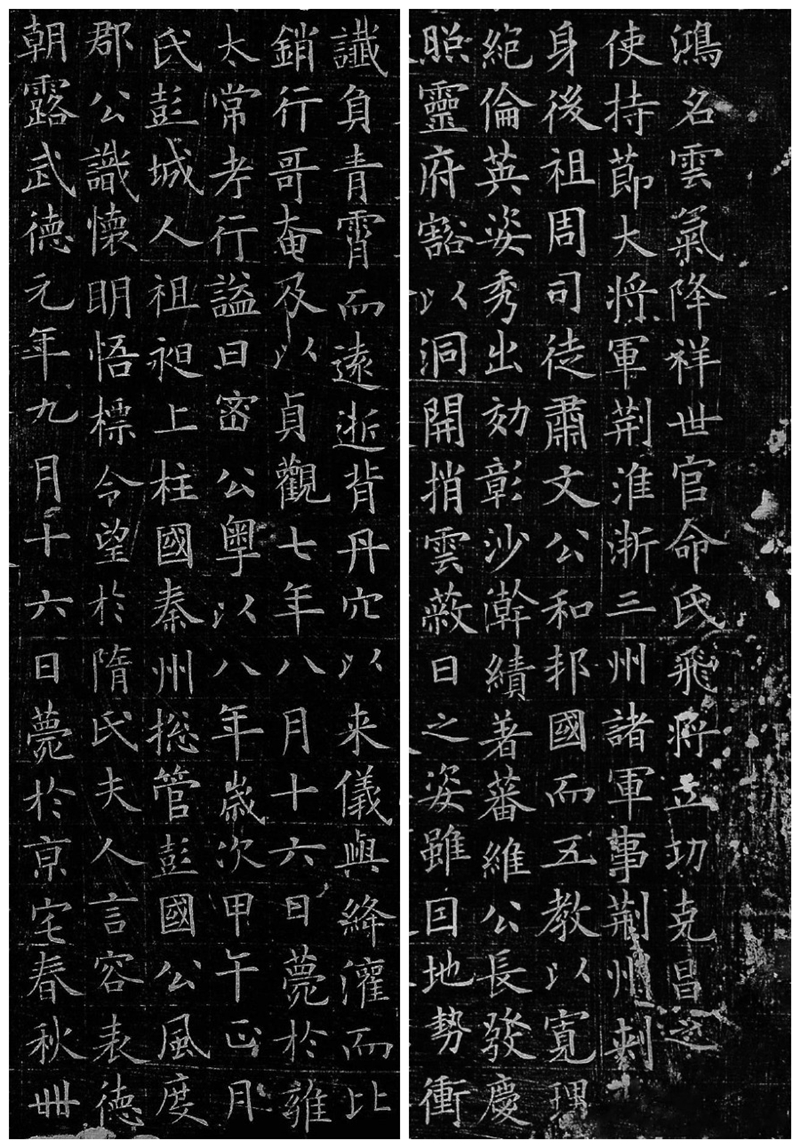 鴻名雲氣降祥世官命氏飛將立功克昌之
使持節大將軍荊淮浙三州諸軍事荊州刺
身後祖周司徒肅文公和邦國而五教以寬理
絕倫英姿秀出効彰沙澣績著蕃維公長發慶
照靈府豁以洞開捎雲蔽日之姿雖因地勢衝
讖負青霄而遠逝背丹穴以来儀與絳灌而比
銷行哥奄及以貞觀七年八月十六日薨於雍
太常考行謚曰密公粵以八年歲次甲午正月
氏彭城人祖昶上柱國秦州捴管彭國公風度
郡公識懷眀悟標令望於隋氏夫人言容表德
朝露武德元年九月十六日薨於京宅春秋卌